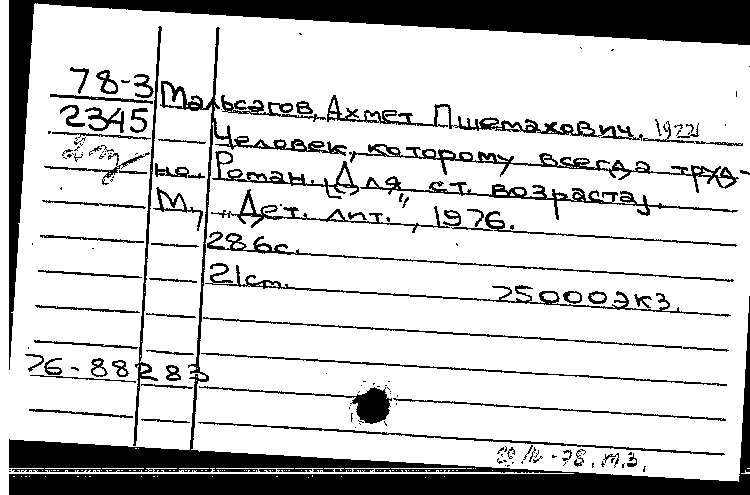 78-3 Мальсагов, Ахмет Пшемахович. 1922
2345 Человек, которому всегда труд-
но. Роман. [Для ст. возраста].
М., „Дет. лит.“, 1976.
286с.
21см. 75000экз.
76-88283
-78. М.З.